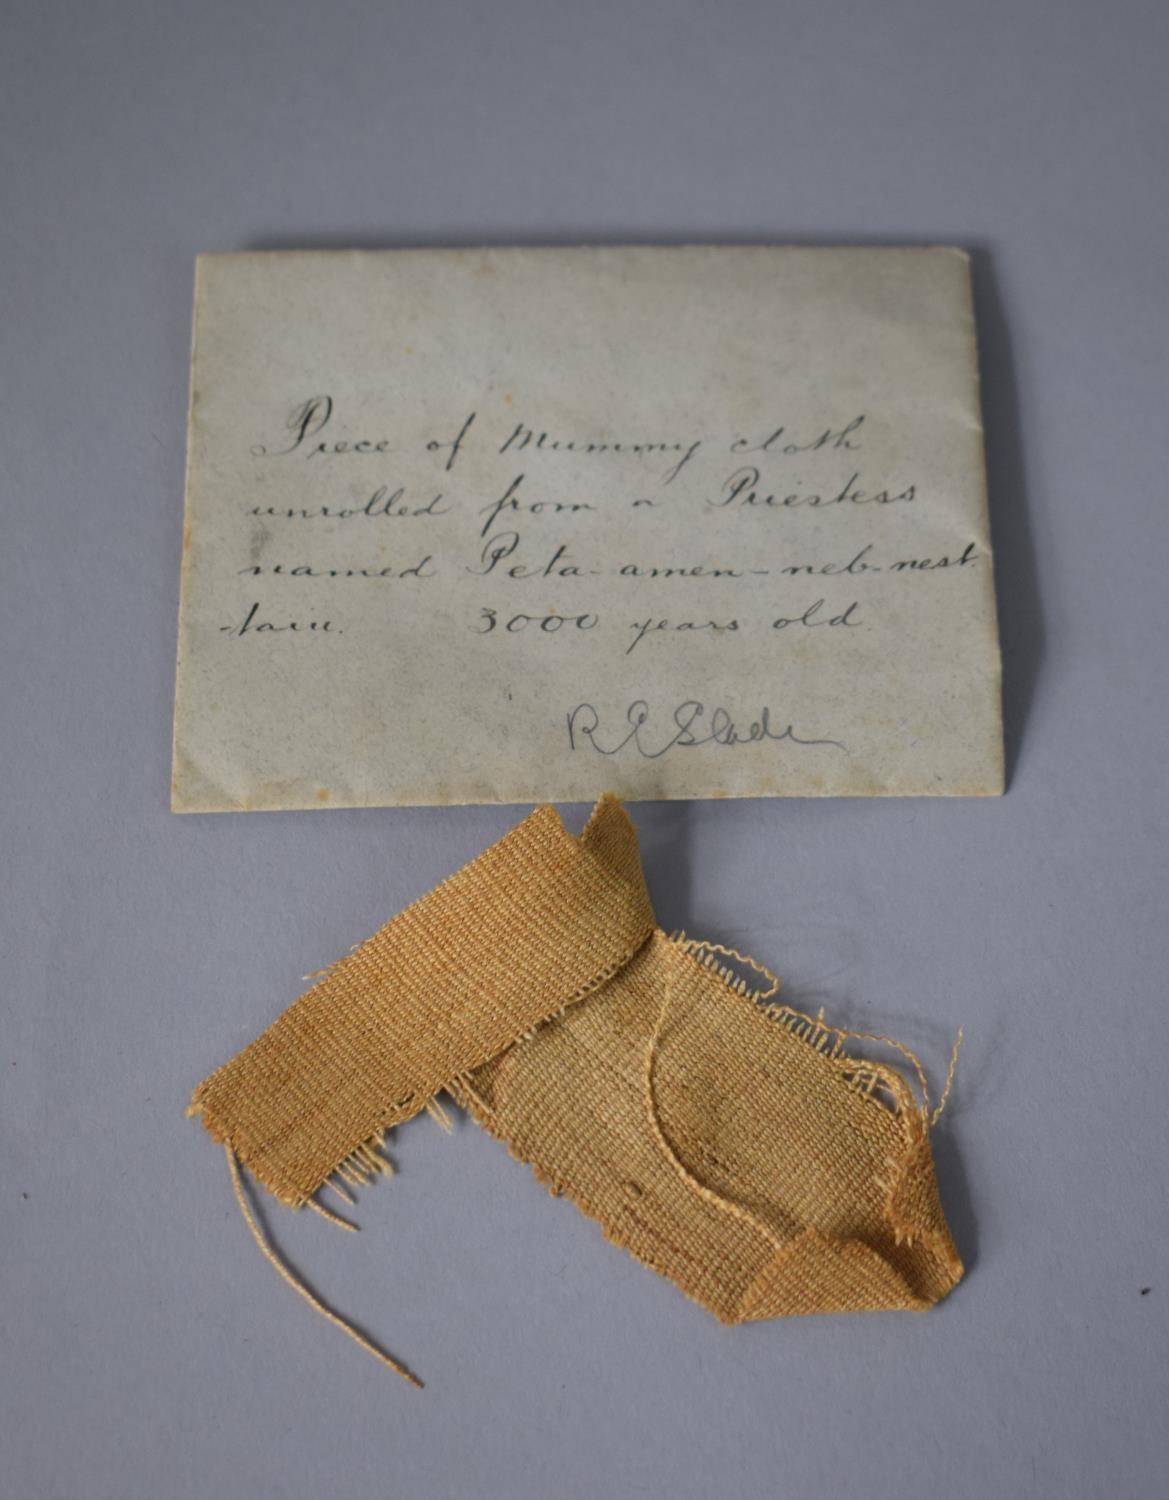 Piece of Mummy cloth
unrolled from a Priestess
named Peta-amen-neb-nest.
-taui. 3000 years old.
R E Slade